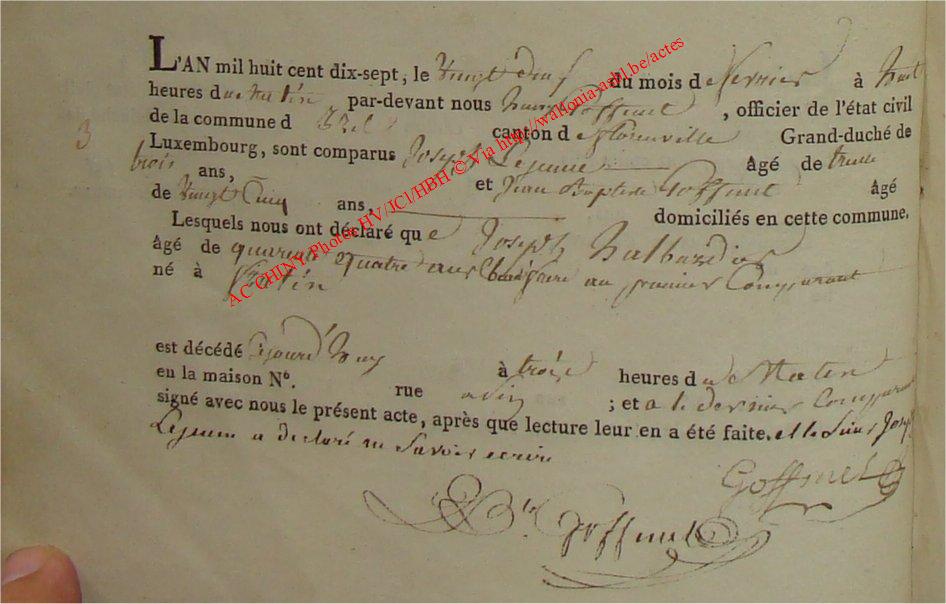 L'AN mil huit cent dix-sept, le vingt deux du mois de fevrier à huit
heures du matin par-devant nous Goffinet, officier de l'état civil
3
de la commune d canton de florenville Grand-duché de
Luxembourg, sont comparus Joseph Lejeune âgé de trente
trois ans, et Jean Baptiste Goffinet âgé
de vingt cinq ans, domiciliés en cette commune.
Lesquels nous ont déclaré que Joseph halbardier
âgé de quarante quatre ans beaufrere au premier Comparant
né à
est décédé aujourd'huy à trois heures du Matin
en la maison N°. rue ; et a le dernier Comparant
signé avec nous le présent acte, après que lecture leur en a été faite. et le Sieur Joseph
Lejeune a declaré ne Savoir ecrire
Goffinet
Bte Goffinet
AC CHINY Photos HV/JCl/HBH © Via http://wallonia-asbl.be/actes